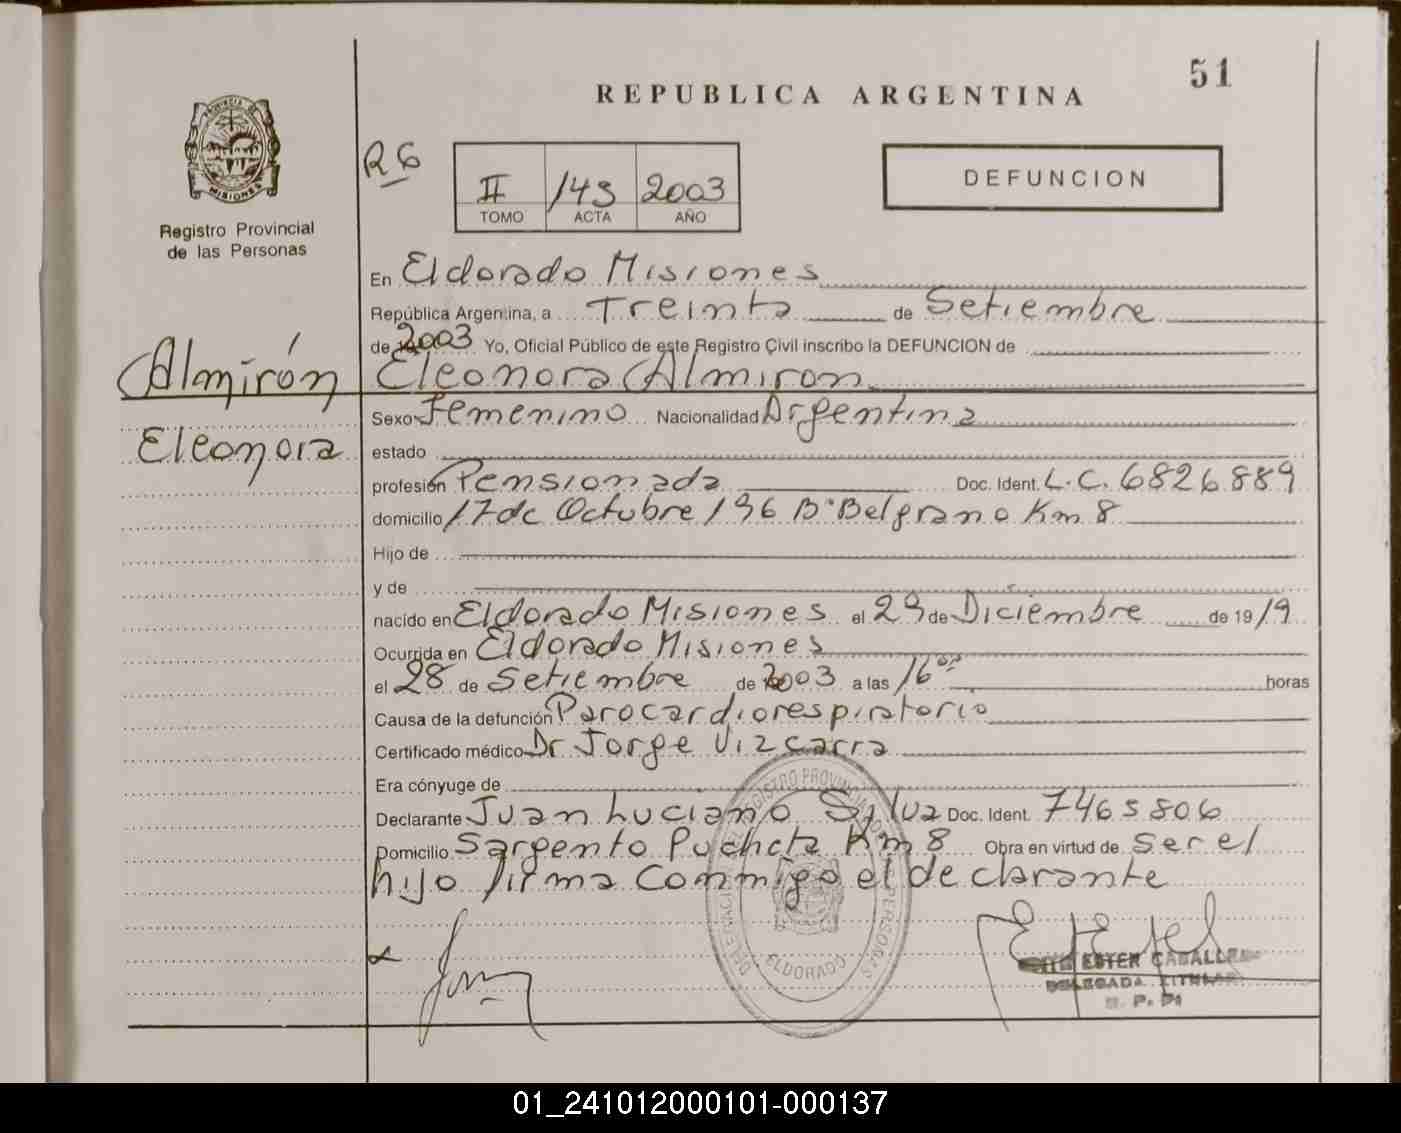 51
REPUBLICA ARGENTINA
PROVINCIA DE
MISIONES
Registro Provincial
de las Personas
R6
II 143 2003
TOMO ACTA AÑO
DEFUNCION
En Eldorado Misiones
República Argentina, a Treinta de Setiembre
de 2003 Yo, Oficial Público de este Registro Civil inscribo la DEFUNCION de
Almirón Eleonora Almiron
Sexo Femenino Nacionalidad Argentina
Eleonora estado
profesión Pensionada Doc. Ident. L.C. 6826889
domicilio 17 de Octubre 196 Bº Belgrano Km 8
Hijo de
y de
nacido en Eldorado Misiones el 29 de Diciembre de 1919
Ocurrida en Eldorado Misiones
el 28 de Setiembre de 2003 a las 16 horas
Causa de la defunción Parocardiorespiratorio
Certificado médico Dr Jorge Vizcarra
Era cónyuge de
Declarante Juan Luciano Silva Doc. Ident. 7465806
Domicilio Sargento Km 8 Obra en virtud de ser el
hijo firma conmigo el declarante
REGISTRO PROVINCIAL DE PERSONAS
ELDORADO
ESTER CABALLERO
DELEGADA TITULAR
R. P. P.
01_241012000101-000137